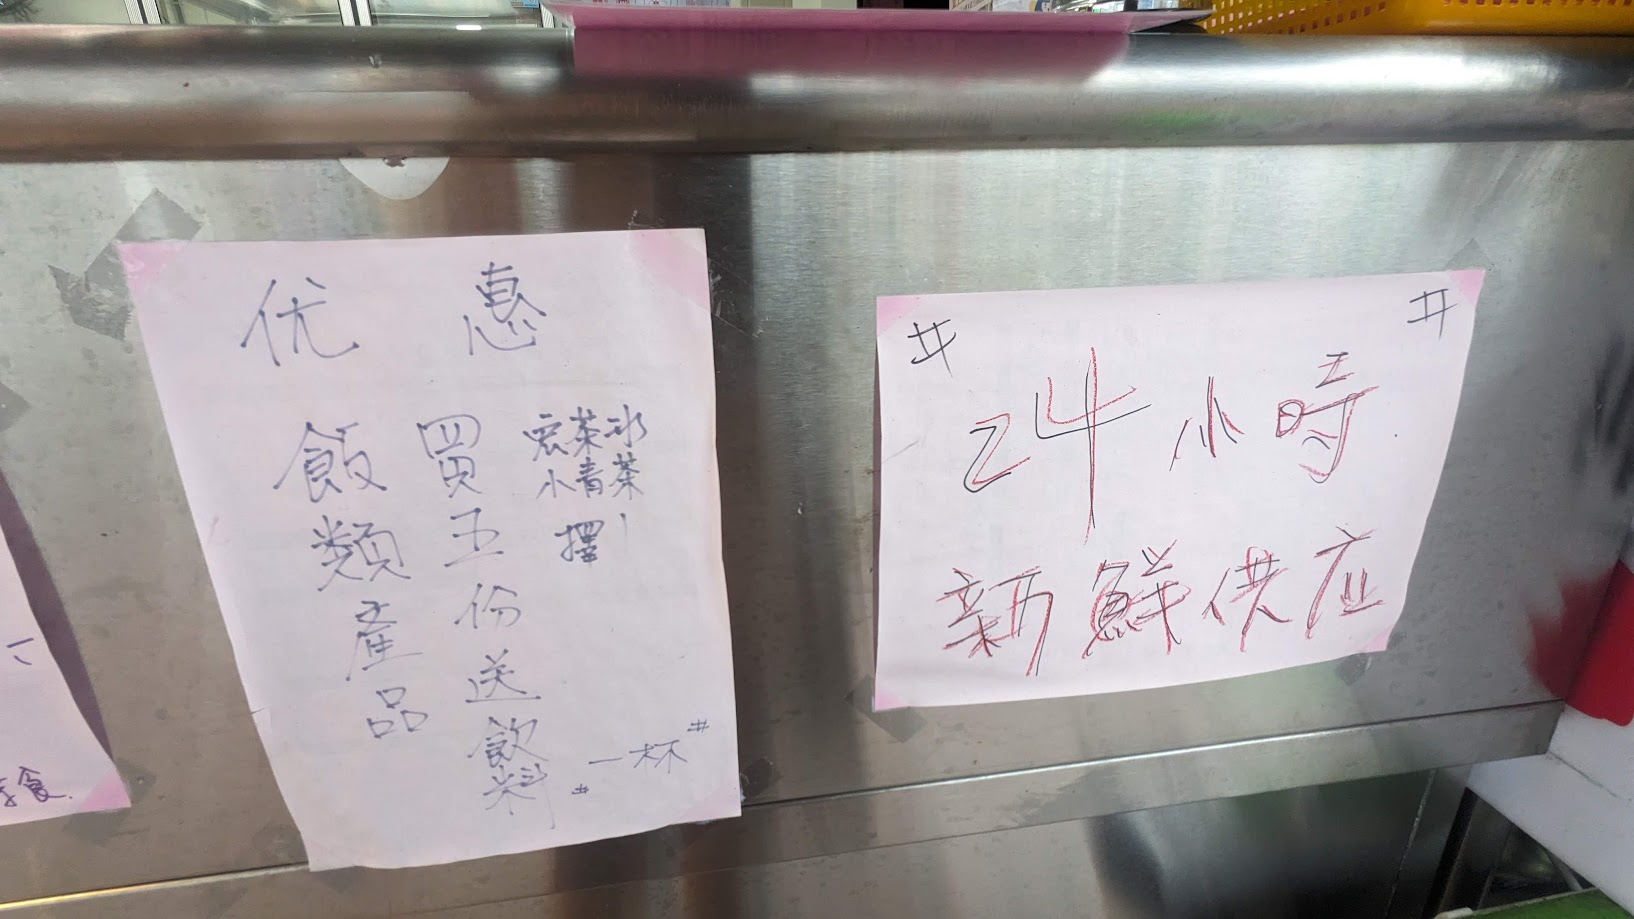 优惠
飯類產品
買五份送飲料
冰茶
茶青
小
擇一
# 一杯 #
# #
24小時
新鮮供应
食